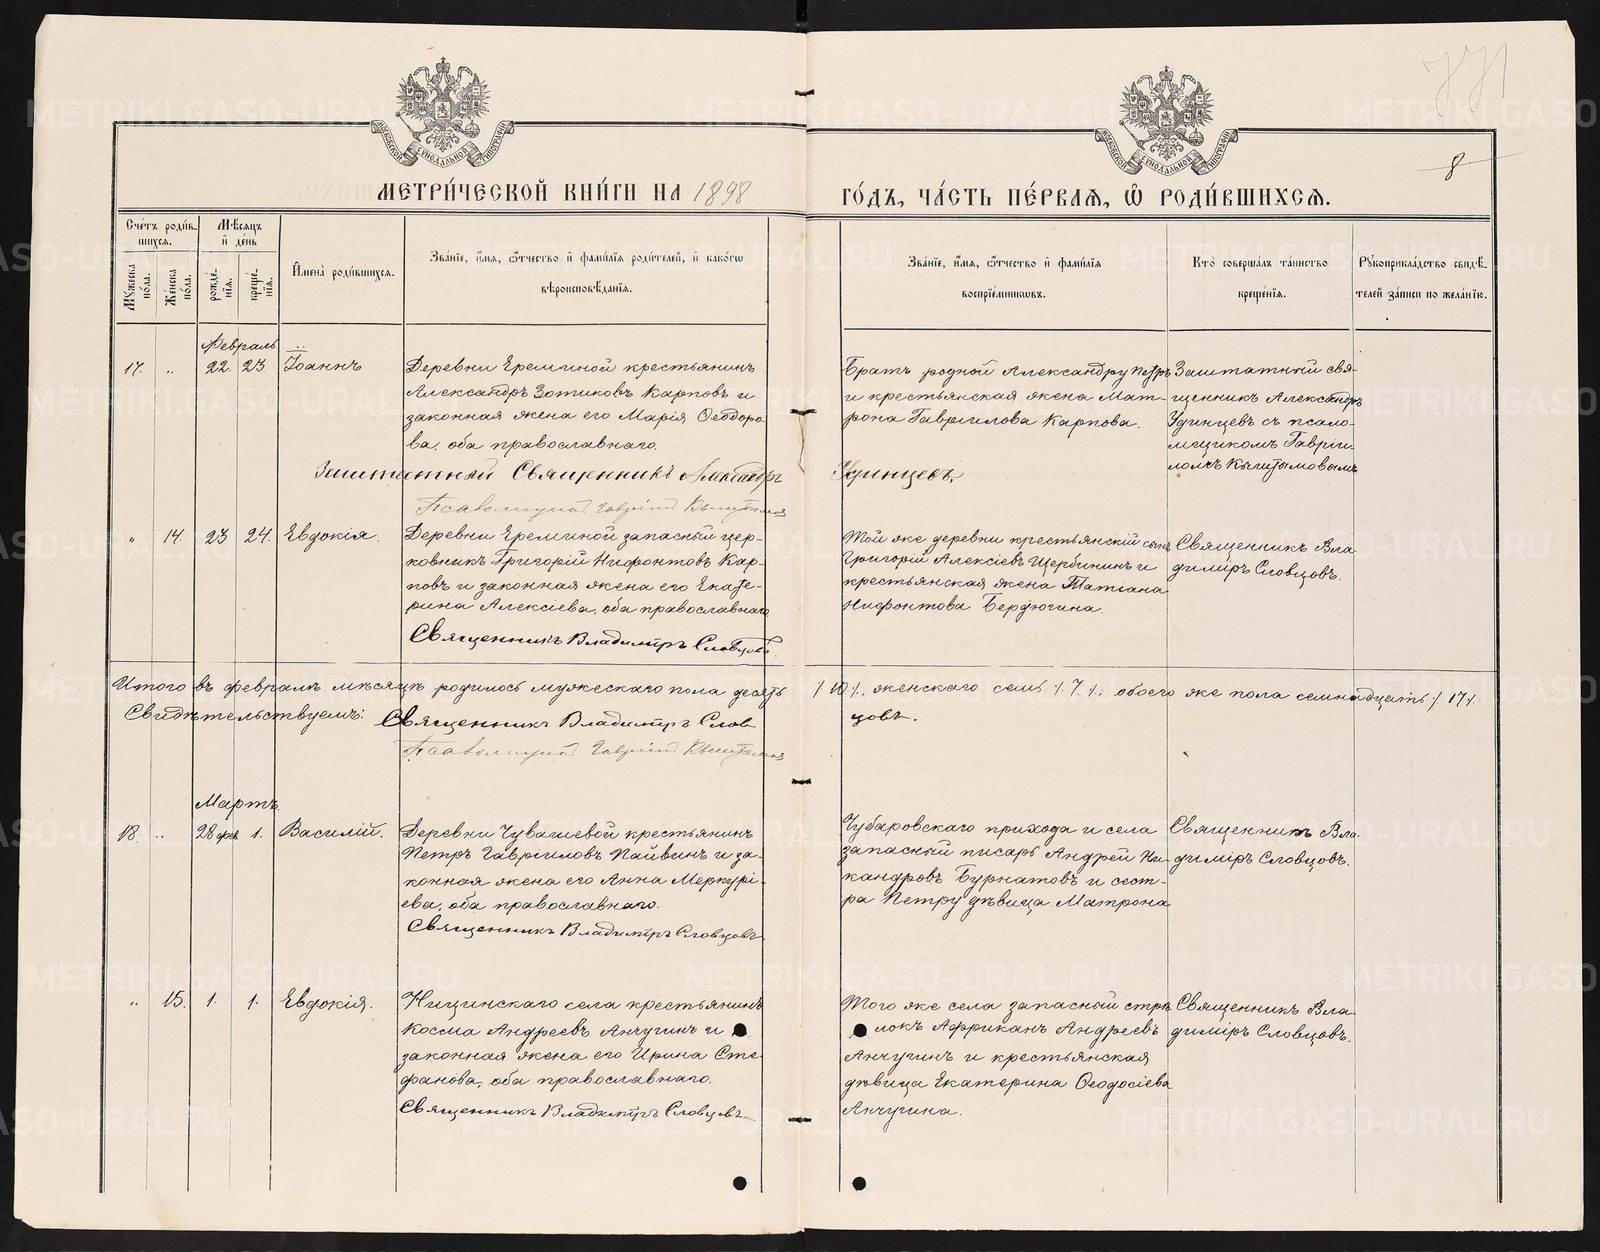 771
8
МЕТРИ́ЧЕСКОЙ КНИ́ГИ НА 1898
ГО́ДЪ, ЧА́СТЬ ПЕ́РВАЯ, Ѽ РОДИ́ВШИХСЯ.
Сче́тъ роди́в-
шихся.
Мѣ́сяцъ
и҆ де́нь
Му́жеска
по́ла.
Же́нска
по́ла.
рожде́-
нїя.
креще́-
нїя.
И҆мена̀ роди́вшихся.
Зва́нїе, и҆́мя, ѻ҆́тчество и҆ фами́лїя роди́телей, и҆ како́гѡ
вѣроисповѣ́данїя.
Зва́нїе, и҆́мя, ѻ҆́тчество и҆ фами́лїя
воспрїе́мникѡвъ.
Кто̀ соверша́лъ та́инство
креще́нїя.
Рꙋкоприкла́дство свидѣ́-
телей за́писи по жела́нїю.
Февраль
17. „ 22. 23. Іоаннъ
Деревни Ереминой крестьянинъ
Александръ Зотиковъ Карповъ и
законная жена его Марія Ѳеодоро-
ва, оба православнаго.
Братъ родной Александру Петръ
и крестьянская жена Мат-
рона Гавріилова Карпова.
Заштатный свя-
щенникъ Александръ
Удинцевъ съ псало-
мщикомъ Гавріи-
ломъ Кыштымовымъ
Заштатный Священникъ Александръ Удинцевъ,
Псаломщикъ Гавріилъ Кыштымов
„ 14. 23 24. Евдокія.
Деревни Ереминой запасный цер-
ковникъ Григорій Нифонтовъ Кар-
повъ и законная жена его Екате-
рина Алексіева, оба православнаго
Священникъ Владимиръ Словцовъ.
Той же деревни крестьянскій сынъ
Григорій Алексіевъ Щербининъ и
крестьянская жена Татіана
Нифонтова Бердюгина.
Священникъ Вла-
димиръ Словцовъ.
Итого въ февралѣ мѣсяцѣ родилось мужескаго пола десять /10/., женскаго семь /.7./.; обоего же пола семнадцать /17/.
Свидѣтельствуемъ: Священникъ Владимиръ Слов
цовъ.
Псаломщикъ Гавріилъ Кыштымов
Мартъ
18. „ 28 фев 1. Василій.
Деревни Чувашевой крестьянинъ
Петръ Гавріиловъ Пайвинъ и за-
конная жена его Анна Меркурі-
ева, оба православнаго.
Священникъ Владимиръ Словцовъ
Чубаровскаго прихода и села
запасный писарь Андрей Ни-
кандровъ Бурнатовъ и сест-
ра Петру дѣвица Матрона
Священникъ Вла-
димиръ Словцовъ.
„ 15. 1. 1. Евдокія.
Ницинскаго села крестьянинъ
Косма Андреевъ Анчугинъ и
законная жена его Ирина Сте-
фанова, оба православнаго.
Священникъ Владимиръ Словцовъ.
Того же села запасный стрѣ
локъ Африканъ Андреевъ
Анчугинъ и крестьянская
дѣвица Екатерина Ѳеодосіева
Анчугина.
Священникъ Вла-
димиръ Словцовъ.